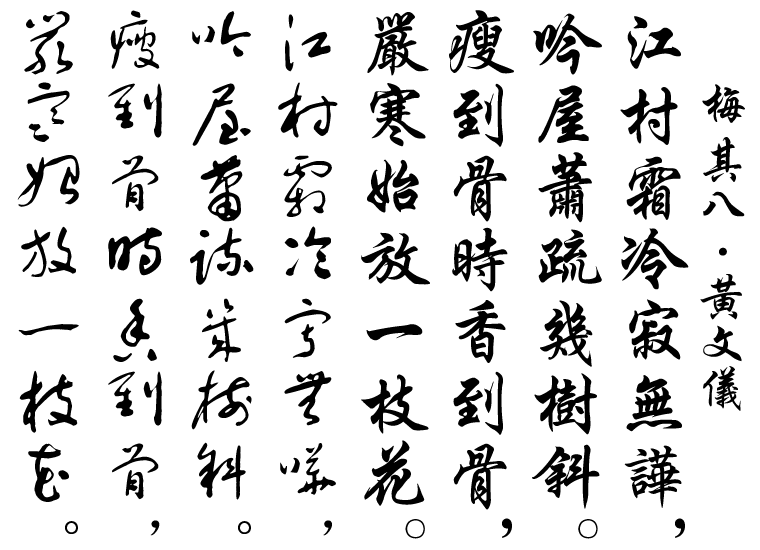 梅其八·黃文儀
江村霜冷寂無譁，
吟屋蕭疏幾樹斜。
瘦到骨時香到骨，
嚴寒始放一枝花。
江村霜冷寂無嘩，
吟屋蕭疏幾樹斜。
瘦到骨時香到骨，
嚴寒始放一枝花。